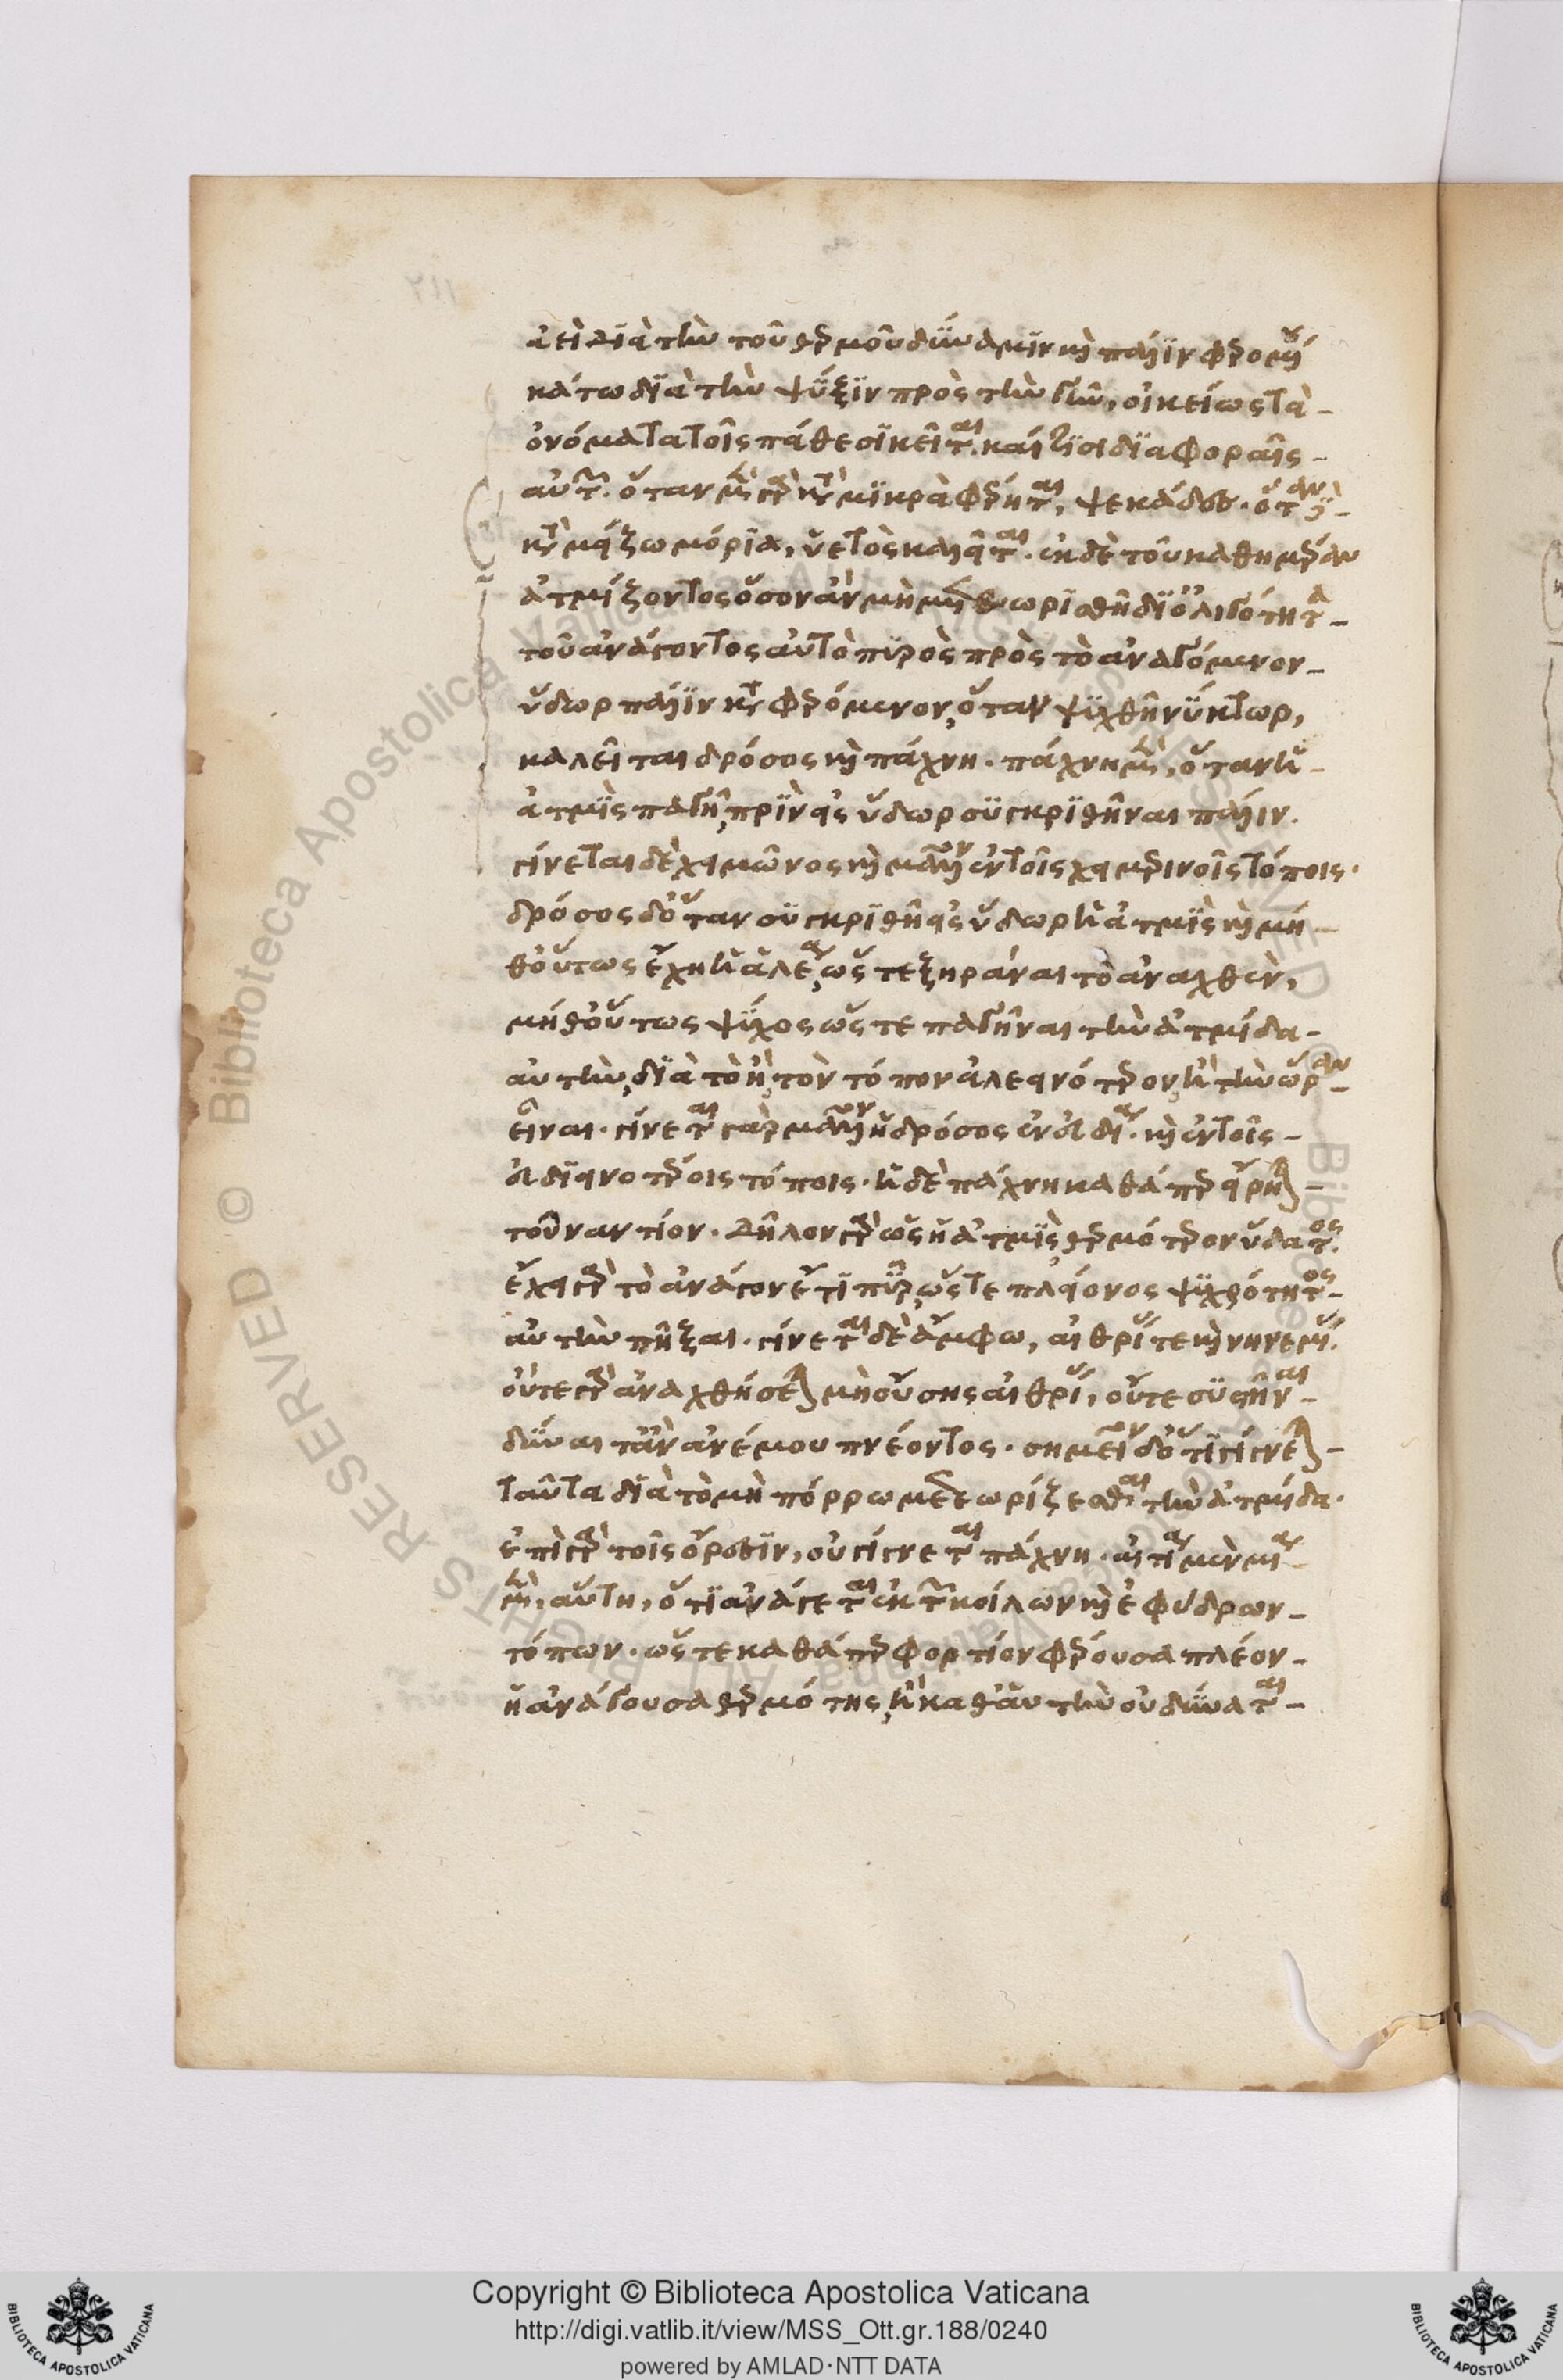 ἀεὶ διὰ τὴν τοῦ θερμοῦ δύναμιν καὶ πάλιν φερομένης
κάτω διὰ τὴν ψύξιν πρὸς τὴν γῆν, οἰκείως τὰ
ὀνόματα τοῖς πάθεσι κεῖται. καί τισι διαφοραῖς
αὐτῶν. ὅταν μὲν γὰρ κατὰ μικρὰ φέρηται, ψεκάδες. ὅταν δὲ
κατὰ μείζω μόρια, ὑετὸς καλεῖται. ἐκ δὲ τοῦ καθημέραν
ἀτμίζοντος ὅσον ἂν μὴ μετεωρισθῇ δι' ὀλιγότητα
τοῦ ἀνάγοντος αὐτὸ πυρὸς πρὸς τὸ ἀναγόμενον
ὕδωρ πάλιν καταφερόμενον, ὅταν ψυχθῇ νύκτωρ,
καλεῖται δρόσος καὶ πάχνη. πάχνη μὲν, ὅταν ἡ
ἀτμὶς παγῇ, πρὶν εἰς ὕδωρ συγκριθῆναι πάλιν.
γίνεται δὲ χειμῶνος καὶ μᾶλλον ἐν τοῖς χειμερινοῖς τόποις.
δρόσος δ' ὅταν συγκριθῇ εἰς ὕδωρ ἡ ἀτμὶς καὶ μή
θ' οὕτως ἔχῃ ἡ ἀλέα, ὥστε ξηρᾶναι τὸ ἀναχθὲν,
μήθ' οὕτως ψύχος ὥστε παγῆναι τὴν ἀτμίδα
αὐτὴν, διὰ τὸ ἢ τὸν τόπον ἀλεεινότερον, ἢ τὴν ὥραν
εἶναι. γίνεται γὰρ μᾶλλον ἡ δρόσος ἐν εὐδίᾳ. καὶ ἐν τοῖς
εὐδιεινοτέροις τόποις. ἡ δὲ πάχνη καθάπερ εἴρηται
τοὐναντίον. δῆλον γὰρ ὡς ἡ ἀτμὶς, θερμότερον ὕδατος.
ἔχει γὰρ τὸ ἀνάγον ἔτι πῦρ, ὥστε πλείονος ψυχρότητος
αὐτὴν πῆξαι. γίνεται δὲ ἄμφω, αἰθρίας τε καὶ νηνεμίας.
οὔτε γὰρ ἀναχθήσεται μὴ οὔσης αἰθρίας, οὔτε συστῆναι
δύναιτ' ἂν ἀνέμου πνέοντος. σημεῖον δ' ὅτι γίγνεται
ταῦτα διὰ τὸ μὴ πόρρω μετεωρίζεσθαι τὴν ἀτμίδα.
ἐπὶ γὰρ τοῖς ὄρεσιν, οὐ γίγνεται πάχνη. αἰτία μὲν μία
μὲν, αὕτη, ὅτι ἀνάγεται ἐκ τῶν κοίλων καὶ ἐφύδρων
τόπων. ὥστε καθάπερ φορτίον φέρουσα πλέον
ἡ ἀνάγουσα θερμότης, ἢ καθ' αὑτὴν οὐ δύναται
Copyright © Biblioteca Apostolica Vaticana
http://digi.vatlib.it/view/MSS_Ott.gr.188/0240
powered by AMLAD·NTT DATA